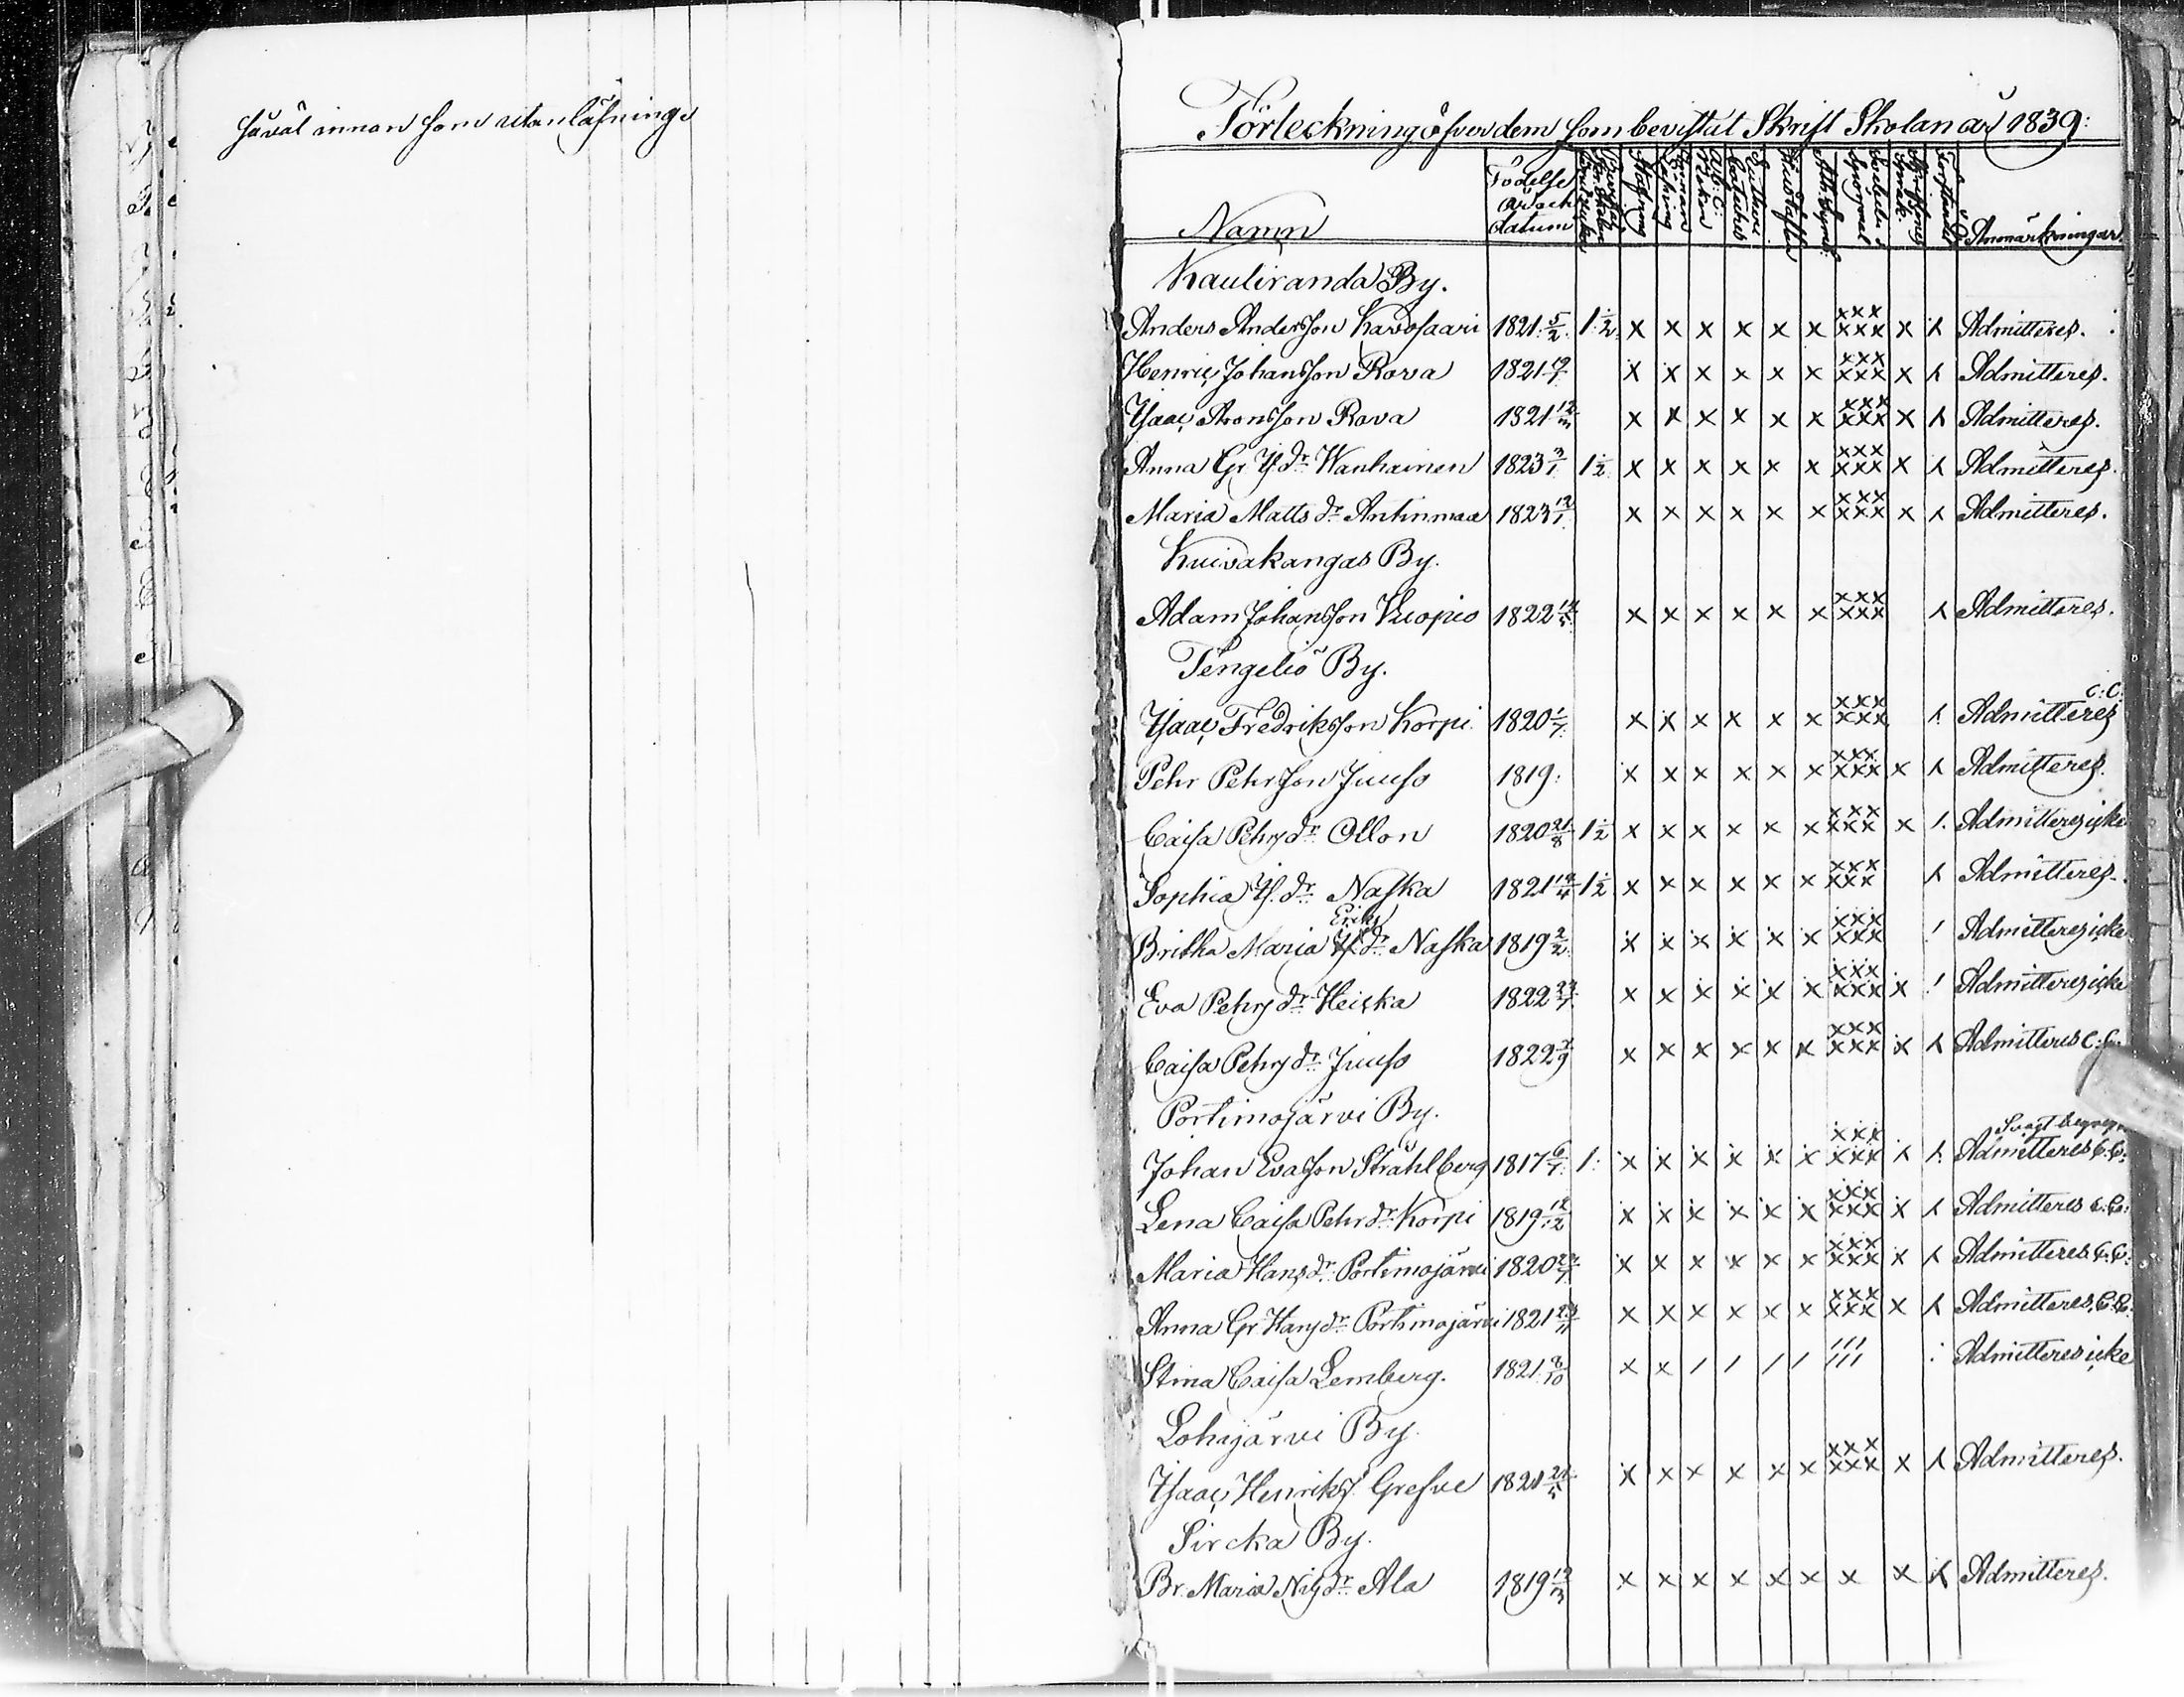 såväl innan som utanläsninge
Förteckning öfver dem som bevistat Skrift Skolan år 1839:
Namn Födelse år och datum Stafning Innan Läsning A.B.C. Boken Lutheri Catechis Hus Taflan Svebelii Spörgsmål Förstånd Anmärkningar.
Kauliranda By.
Anders Andersson Karosaari 1821 5/2 1 1/2 x x x x x x xxx xxx x x Admitteres.
Henric Johansson Rova 1821 x x x x x x xxx xxx x x Admitteres.
Isaac Aronsson Rova 1821 12/3 x x x x x x xxx xxx x x Admitteres.
Anna Gr. Is.dr Wanhainen 1823 3/1 1 1/2 x x x x x x xxx xxx x x Admitteres.
Maria Matts dr Antinmaa 1823 12/1 x x x x x x xxx xxx x x Admitteres.
Kuivakangas By.
Adam Johansson Kuopio 1822 x x x x x x xxx xxx x Admitteres.
Tengeliö By.
Isaac Fredriksson Korpi 1820 1/7 x x x x x x xxx xxx / Admitteres C:C:
Pehr Pehrsson Juuso 1819: x x x x x x xxx xxx x x Admitteres.
Caisa Pehrs dr Ollon 1820 21/8 1 1/2 x x x x x x xxx xxx x /. Admitteres icke
Sophia Is. dr Naska 1821 1 1/2 x x x x x x xxx xxx x Admitteres.
Britha Maria Eriks dr Naska 1819 2/2 x x x x x x xxx xxx / Admitteres icke
Eva Pehrs dr Heiska 1822 x x x x x x xxx xxx x / Admitteres icke
Caisa Pehrs dr Juuso 1822 x x x x x x xxx xxx x x Admitteres C:C:
Portimojärvi By.
Johan Evasson Stråhlberg 1817 6/7 1: x x x x x x xxx xxx x x Svagt begrepp Admitteres C:C:
Lena Caisa Pehrs dr Korpi 1819 12/12 x x x x x x xxx xxx x x Admitteres C:C:
Maria Hans dr Portimojärvi 1820 x x x x x x xxx xxx x x Admitteres C:C:
Anna Gr Hans dr Portimojärvi 1821 23/11 x x x x x x xxx xxx x x Admitteres C:C:
Stina Caisa Lemberg. 1821 8/10 x x / / / / /// /// : Admitteres icke
Lohijärvi By.
Isaac Henrikss. Grefve 1821 x x x x x x xxx xxx x x Admitteres.
Sircka By.
Br. Maria Nils dr Ala 1819 12/3 x x x x x x x x x Admitteres.